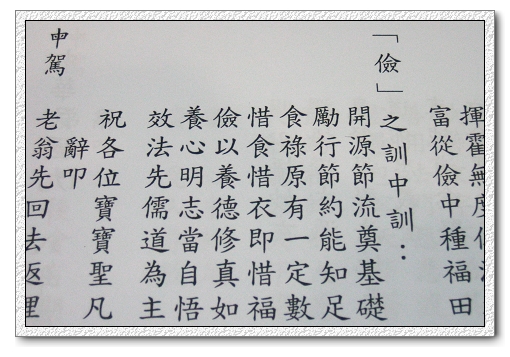 揮霍無度
富從儉中種福田
「儉」之訓中訓：
開源節流奠基礎
勵行節約能知足
食祿原有一定數
惜食惜衣即惜福
儉以養德修真如
養心明志當自悟
效法先儒道為主
祝各位寶寶聖凡
辭叩
申駕 老翁先回去返